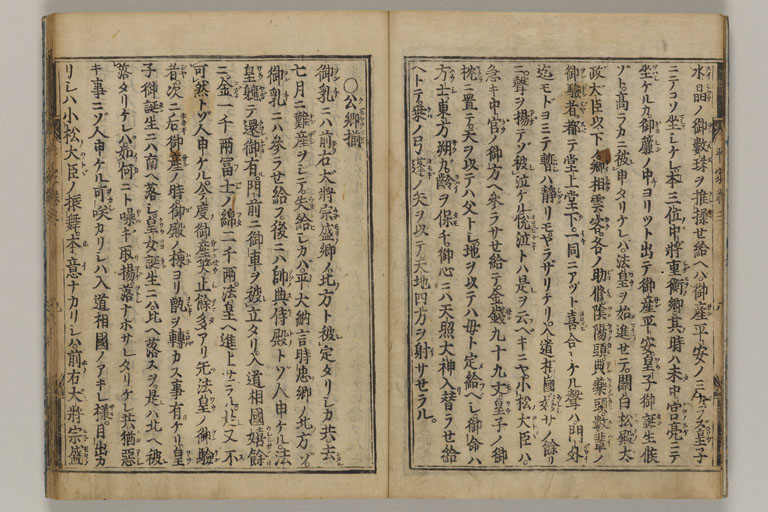 水晶ノ御數珠ヲ推揉セ給ヘハ御産平安ノミナラス皇子
ニテコソ坐シケレ本三位中將重衡卿其時ハ未中宮亮ニテ
坐ケルカ御簾ノ中ヨリツト出テ御産平安皇子御誕生候
ゾト高ラカニ被申タリケレハ法皇ヲ始進セテ關白松殿太
政大臣以下卿相雲客各ノ助修陰陽頭典藥頭數輩ノ
御驗者都テ堂上堂下一同ニアツト喜合ケル聲ハ門外
迄モドヨミテ暫ハ靜リモヤラザリケリ入道相國嬉サノ餘リ
ニ聲ヲ揚テゾ被泣ケル悦泣トハ是ヲ云ヘキニヤ小松大臣ハ
急キ中宮ノ御方ヘ參ラサセ給テ金錢九十九文皇子ノ御
枕ニ置テ天ヲ以テハ父トシ地ヲ以テハ母ト定給ヘシ御命ハ
方士東方朔カ齡ヲ保チ御心ニハ天照大神入替ラセ給
ヘトテ桑ノ弓蓬ノ矢ヲ以テ天地四方ヲ射サセラル。
〇公卿揃
御乳ニハ前右大將宗盛卿ノ北方ト被定タリシカ共去
七月ニ難産ヲシテ失給シカハ平大納言時忠卿ノ北方ゾ
御乳ニハ參ラセ給フ後ニハ帥典侍殿トゾ人申ケル法
皇軈テ還御有門前ニ御車ヲ被立タリ入道相國嬉餘
ニ金一千兩冨士ノ綿二千兩法皇ヘ進上セラル是又不
可然トゾ人申ケル今度御産ニ笑止餘多アリ先法皇ノ御驗
者次ニ后御産ノ時御殿ノ棟ヨリ甑ヲ轉カス事有ケリ皇
子御誕生ニハ南ヘ落シ皇女誕生ニハ北ヘ落スヲ是ハ北ヘ被
落タリケレハ如何ニト噪キ取揚落ナホサレタリケレ共猶惡
キ事ニゾ人申ケル可咲カリシハ入道相國ノアキレ樣目出カ
リシハ小松大臣ノ振舞本意ナカリシハ前右大將宗盛